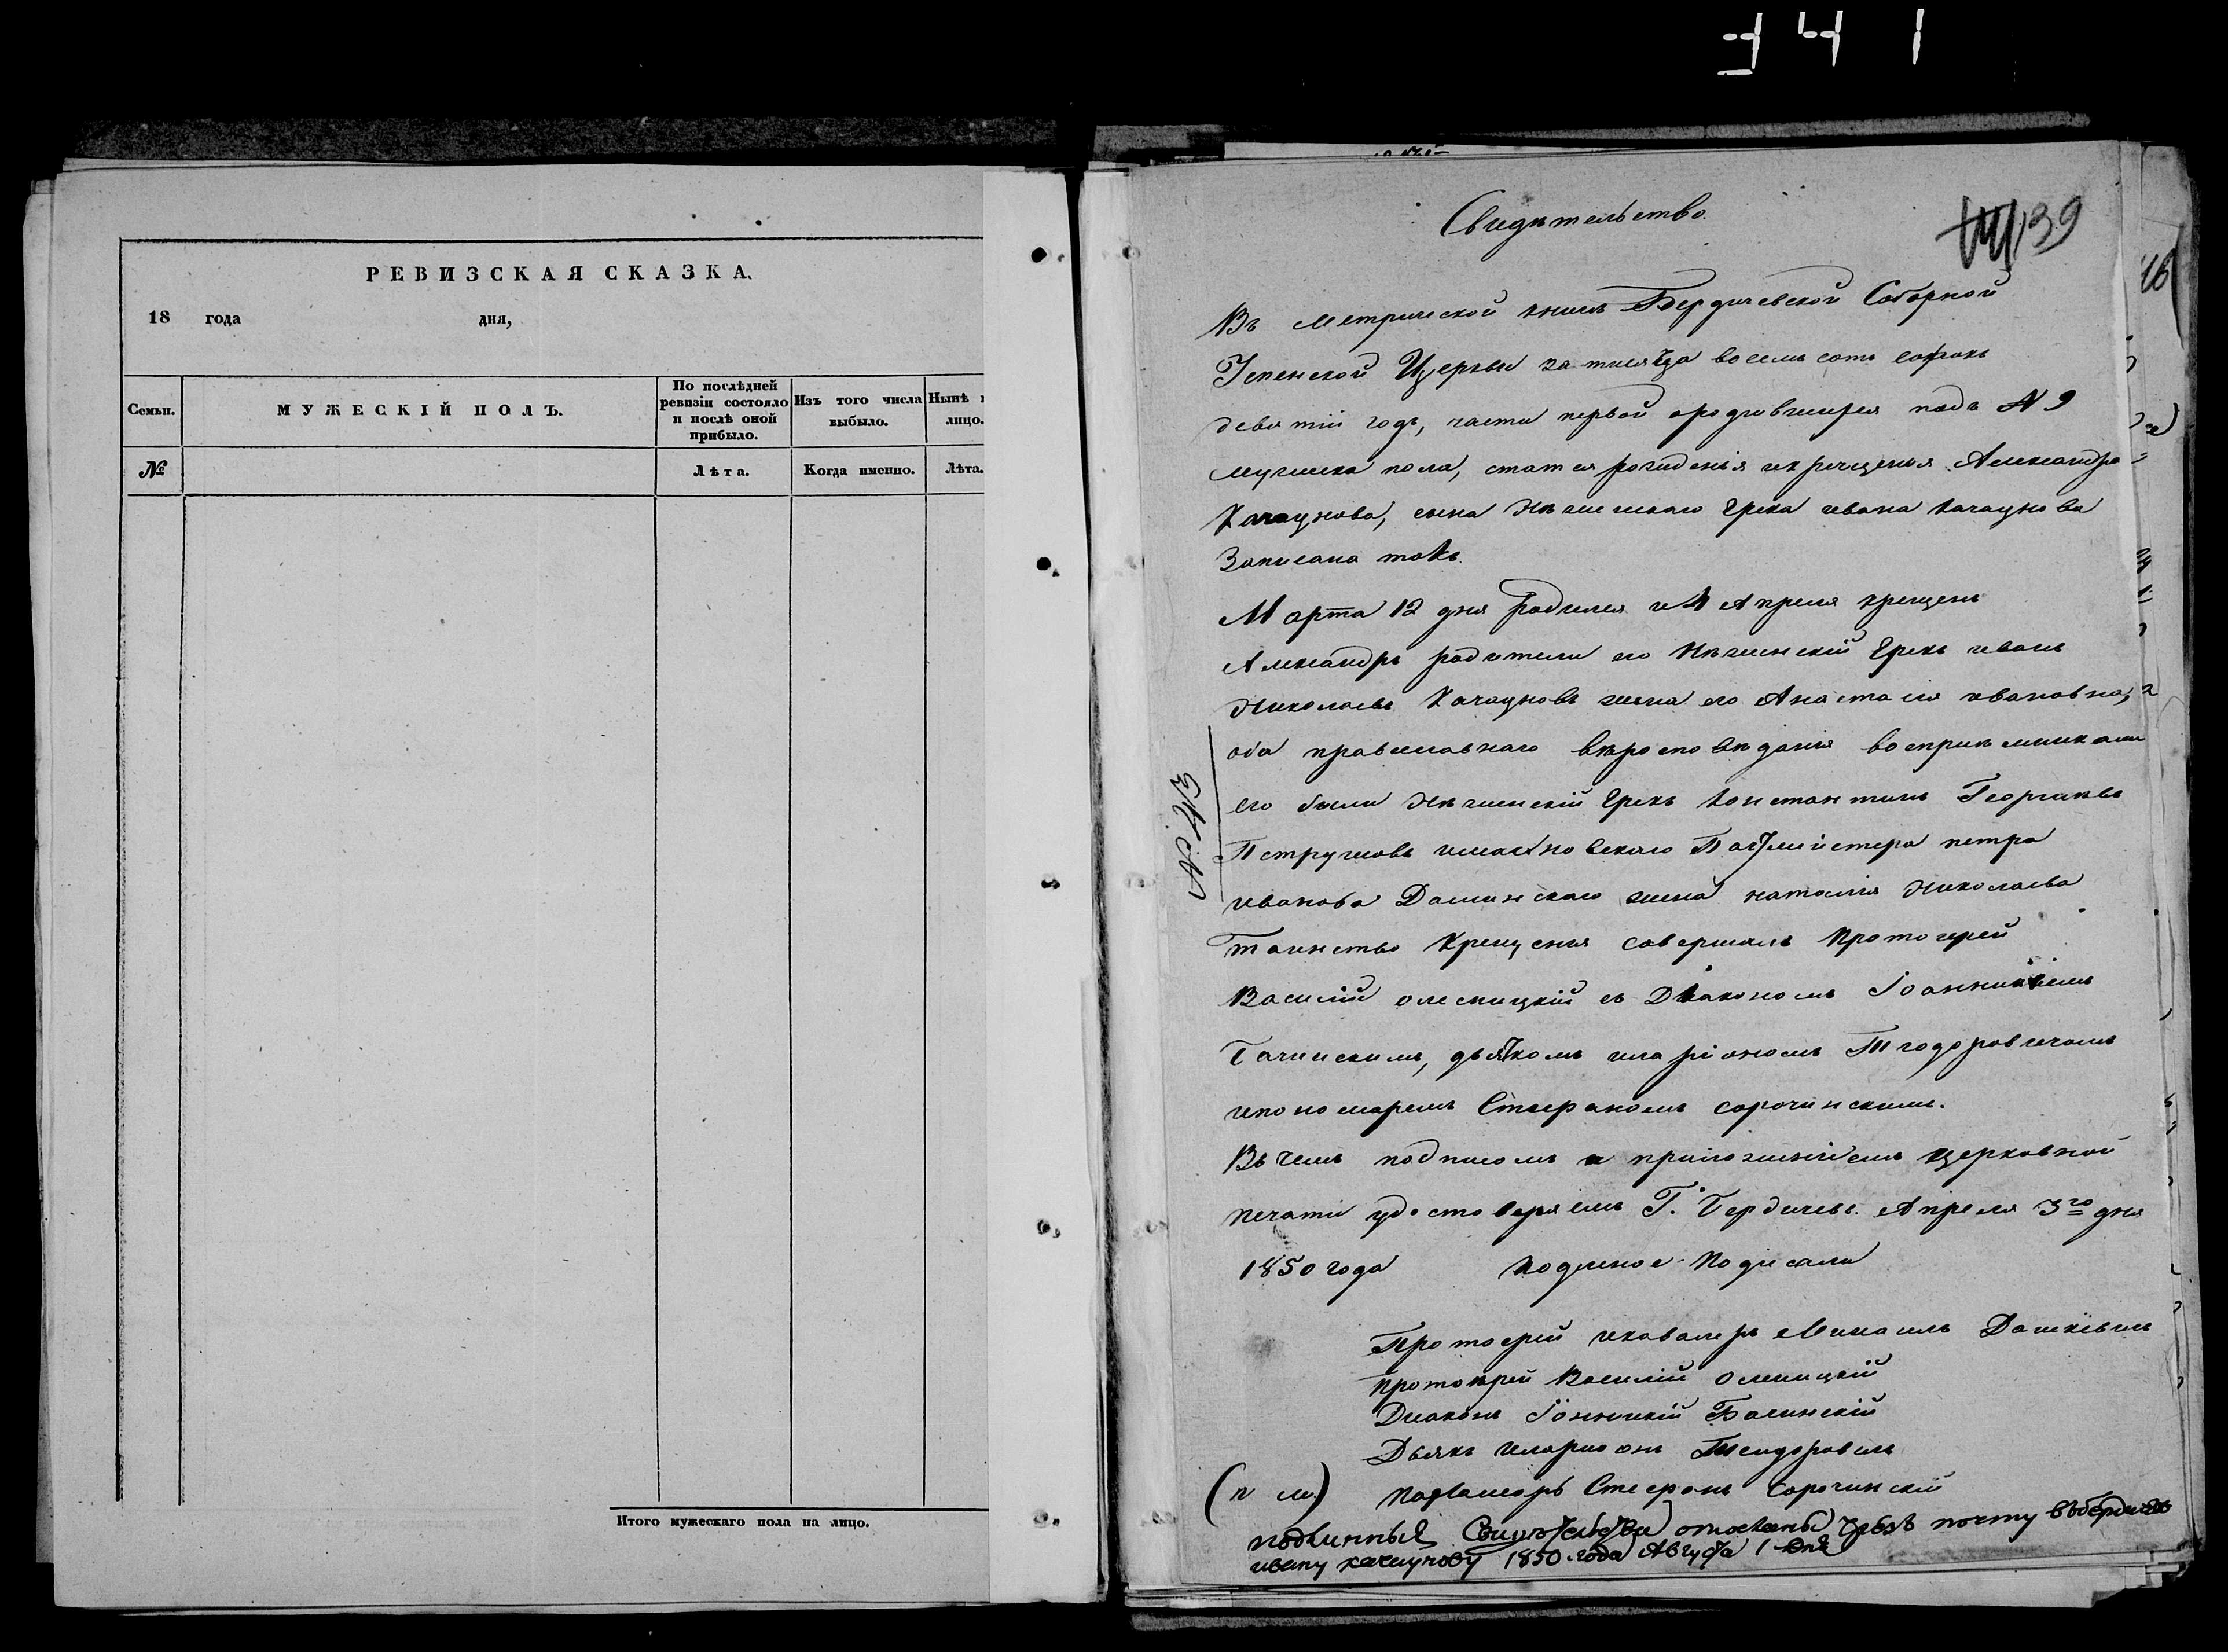 341
РЕВИЗСКАЯ СКАЗКА.
18 года дня,
Семьи.
МУЖЕСКІЙ ПОЛЪ.
По послѣдней
ревизіи состояло
и послѣ оной
прибыло.
Изъ того числа
выбыло.
Нынѣ
лицо.
№
Лѣта.
Когда именно.
Лѣта.
Итого мужескаго пола на лицо.
Свидѣтельство.
139
Въ метрической книгѣ Бердичевской Соборной
Успенской Церкви за тисяча восемь сотъ сорокъ
девятій годъ, части первой ородившихся подъ №9
мужеска пола, статья рожденія икрещенія Александра
Качаунова, сына Нѣжинскаго Грека ивана Качаунова
Записана такъ.
Марта 12 дня родился и 4 Апреля крещенъ
Александръ родители его Нѣжинскій Грекъ иванъ
Николаевъ Качауновъ жена его Анастасія ивановна,
оба православнаго вѣроисповѣданія восприемниками
его были Нѣжинскій Грекъ Константинъ Георгіевъ
№ 43
Петра
иванова жена наталія Николаева
таинство Крещенія совершалъ Протоиерей
Василій олесницкій съ Діакономъ Іоанникіемъ
дьячкомъ иларіономъ Теодоровичемъ
ипономаремъ Стефаномъ сорочинскимъ.
Въ чемъ подписомъ и приложеніемъ церковной
печати удостоверяемъ Г. Бердичевъ. Апреля 3го дня
1850 года
Протоерей икавалеръ Михаилъ Дашкевичъ
Протоіерей Василій
Диаконъ Бачинскій
Дьякъ иларионъ Теодоровичъ
Стефанъ Сорочинскій
подлинныя Свидѣтельства отосланы чрезъ почту въбердичевъ
ивану качаунову 1850 года Августа 1 дня